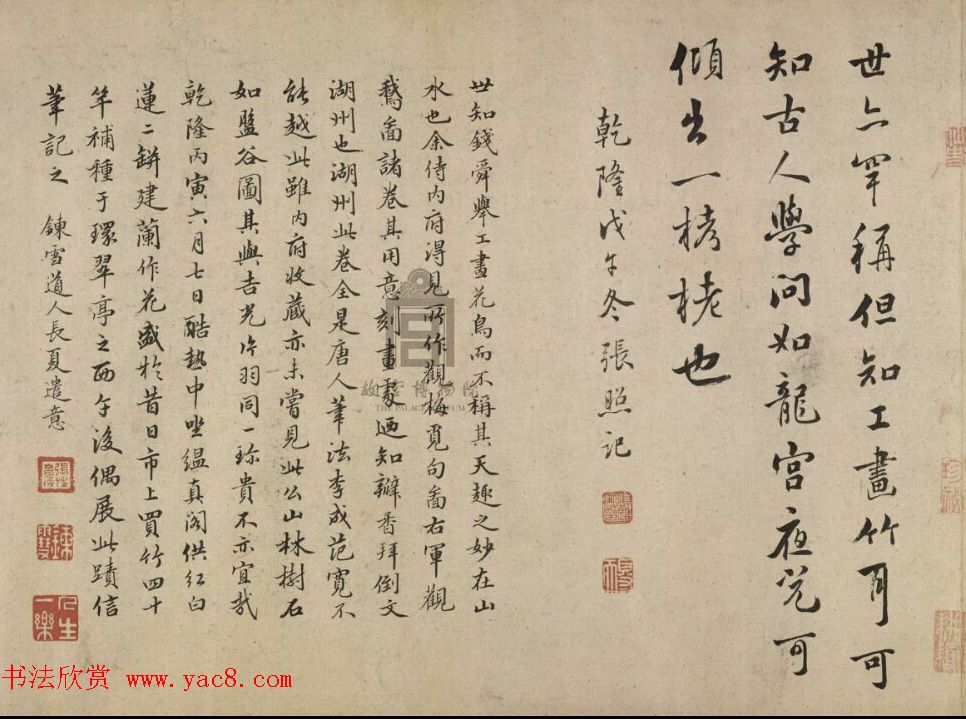 世亦罕稱但知工畫竹耳可
知古人學問如龍宮夜光可
傾出一栲栳也
乾隆戊午冬張照記
世知錢舜舉工畫花鳥而不稱其天趣之妙在山
水也余侍內府得見所作觀梅覓句啚右軍觀
鵝啚諸卷其用意刻畫處迺知瓣香拜倒文
湖州也湖州此卷全是唐人筆法李成范寬不
能越此雖內府收藏亦未嘗見此公山林樹石
如盤谷圖其與吉光片羽同一珍貴不亦宜哉
乾隆丙寅六月七日酷熱中坐縕真閣供紅白
蓮二缾建蘭作花盛於昔日市上買竹四十
竿補種于環翠亭之西午後偶展此蹟信
筆記之 鍊雪道人長夏遣意
人生一樂
故宮博物院
THE PALACE MUSEUM
书法欣赏 www.yac8.com